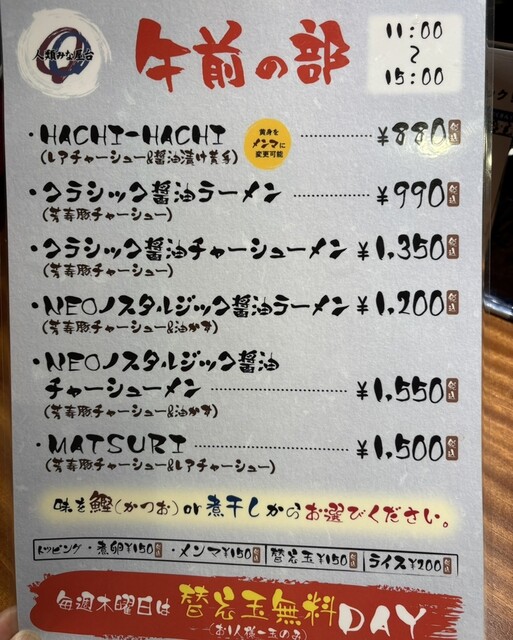 人類みな屋台
午前の部
11:00
～
15:00
・HACHI-HACHI ………… ¥880 税込
(レアチャーシュー&醤油漬け黄身)
黄身を
メンマに
変更可能
・クラシック醤油ラーメン ………… ¥990 税込
(芳寿豚チャーシュー)
・クラシック醤油チャーシューメン ¥1,350 税込
(芳寿豚チャーシュー)
・NEOノスタルジック醤油ラーメン ¥1,200 税込
(芳寿豚チャーシュー&油かす)
・NEOノスタルジック醤油
チャーシューメン ………… ¥1,550 税込
(芳寿豚チャーシュー&油かす)
・MATSURI ………… ¥1,500 税込
(芳寿豚チャーシュー&レアチャーシュー)
味を鰹(かつお)or煮干しからお選びください。
トッピング・煮卵¥150税込・メンマ¥150税込 替え玉¥150税込 ライス¥200税込
毎週木曜日は替え玉無料DAY
(お1人様一玉のみ)